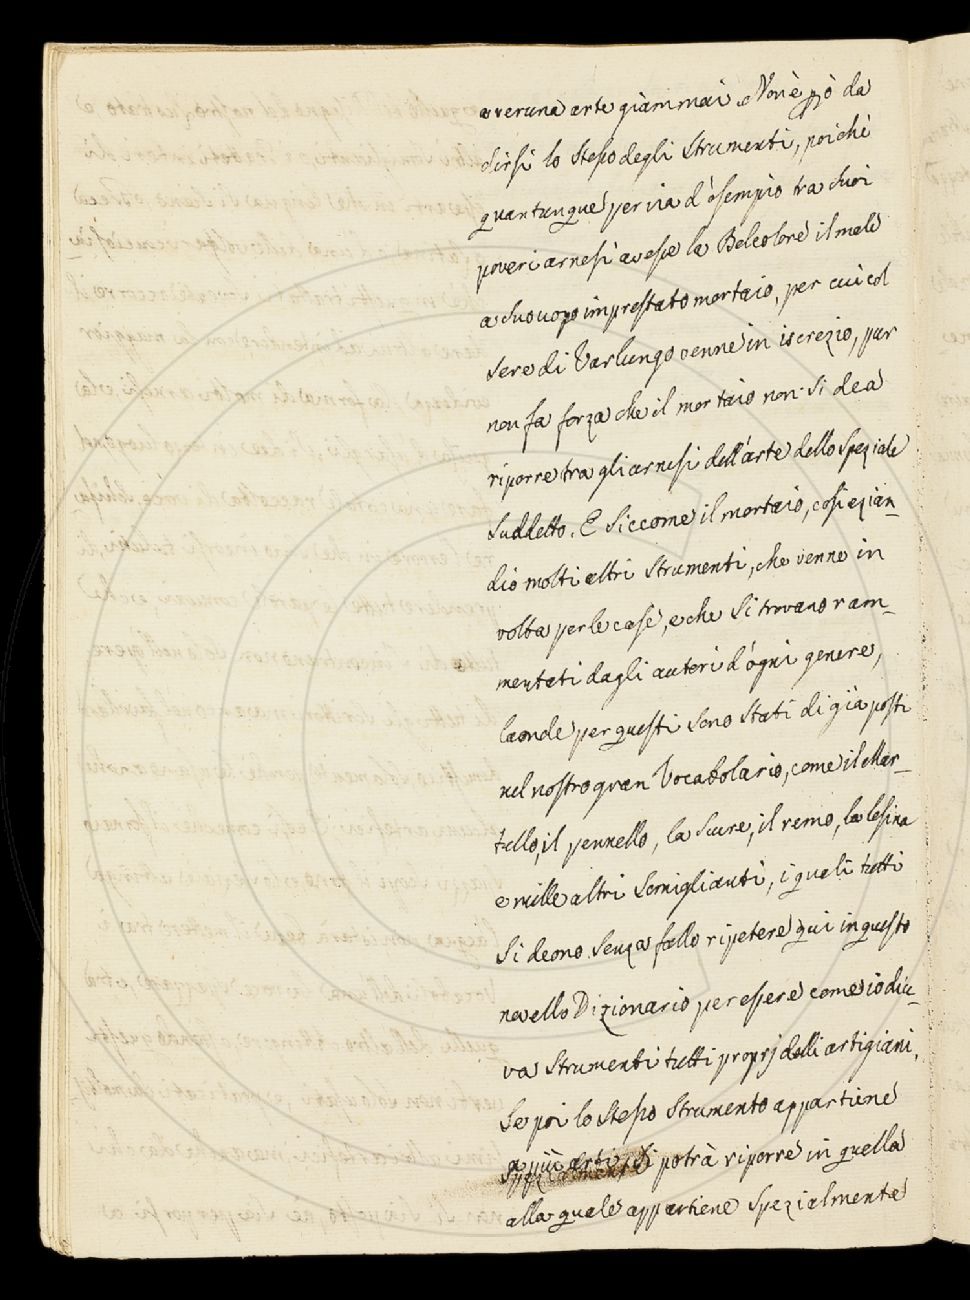 a veruna arte giammai. Non è però da
dirsi lo stesso degli Strumenti, poichè
quantunque per via d'esempio tra suoi
poveri arnesi avesse la Belcolore il male
a suo uopo imprestato mortaio, per cui col
sere di Varlungo venne in iscrezio, pur
non fa forza che il mortaio non si dea
riporre tra gli arnesi dell'arte dello speziale
suddetto. E siccome il mortaio, così ezian-
dio molti altri strumenti, che venne in
volta per le case, e che si trovano ram-
mentati dagli autori d'ogni genere,
laonde per questi sono stati di già posti
nel nostro gran Vocabolario, come il Mar-
tello, il pennello, la scure, il remo, la lesina
e mille altri somiglianti, i quali tutti
si deono senza fallo ripetere qui in questo
novello Dizionario per essere come io dice-
va strumenti tutti proprj delli artigiani.
Se poi lo stesso strumento appartiene
a più arti, si potrà riporre in quella
alla quale appartiene spezialmente